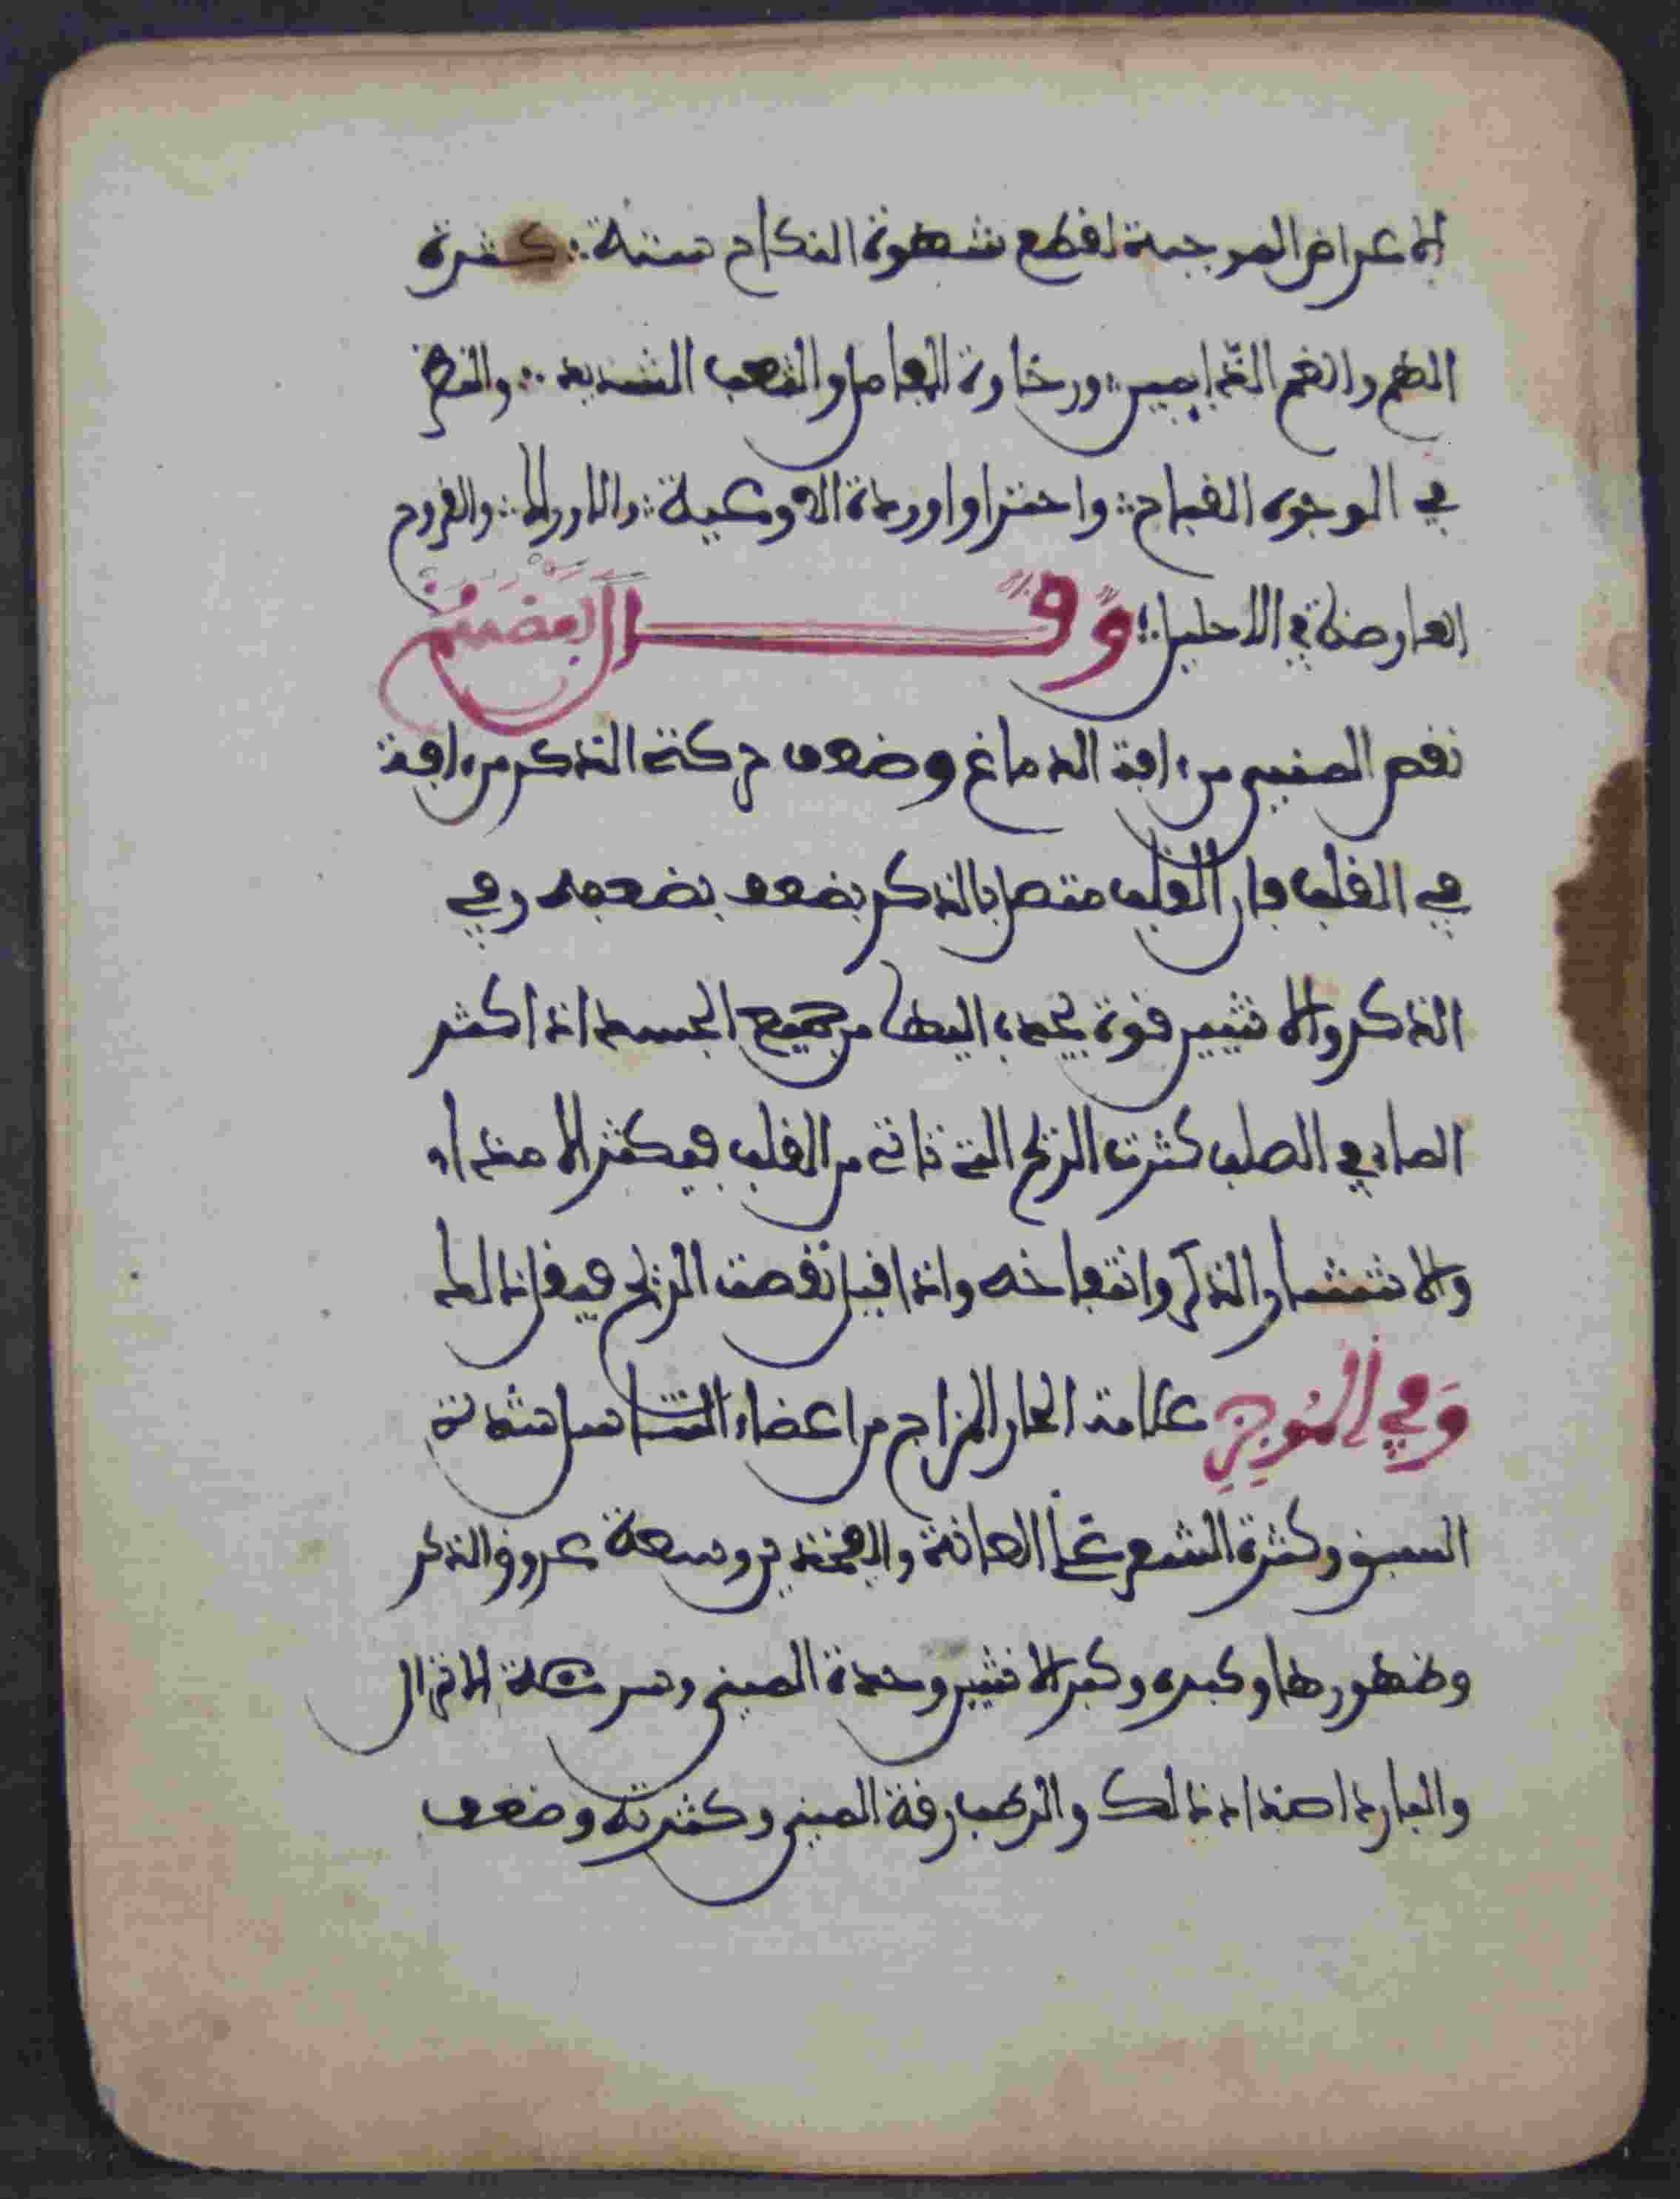 الاعراض الموجبة لقطع شهوة النكاح ستة ∴ كثرة
الهم والغم الدايمين ∴ ورخاوة المفاصل والتعب الشديد ∴ والنظر
في الوجوه القباح ∴ واحتراق اوردة الاوعية ∴ والاورام ∴ والقروح
العارضة في الاحليل ∴ وَقَـــــالَ بَعْضُهُمْ
نقص المني من ءافة الدماغ وضعف حركة الذكر من ءافة
في القلب فان القلب متصل بالذكر يضعف بضعفه وفي
الذكر والانثيين قوة يجذب اليها من جميع الجسد اذا كثر
الماء في الصلب كثرت الريح التي تاتي من القلب فيكثر الامتداد
والانتشار الذكر وانتفاخه واذا قل نقصت الريح فيقل ذالك
وَفِي المُوجِزِ علامة الحار المزاج من اعضاء التناسل شدة
السبق وكثرة الشعر على العانة والفخذين وسعة عروق الذكر
وظهورها وكبره وكبر الانثيين وحدة المني وسرعة الانزال
والبارد اضداد ذالك والرطب رقة المني وكثرته وضعف